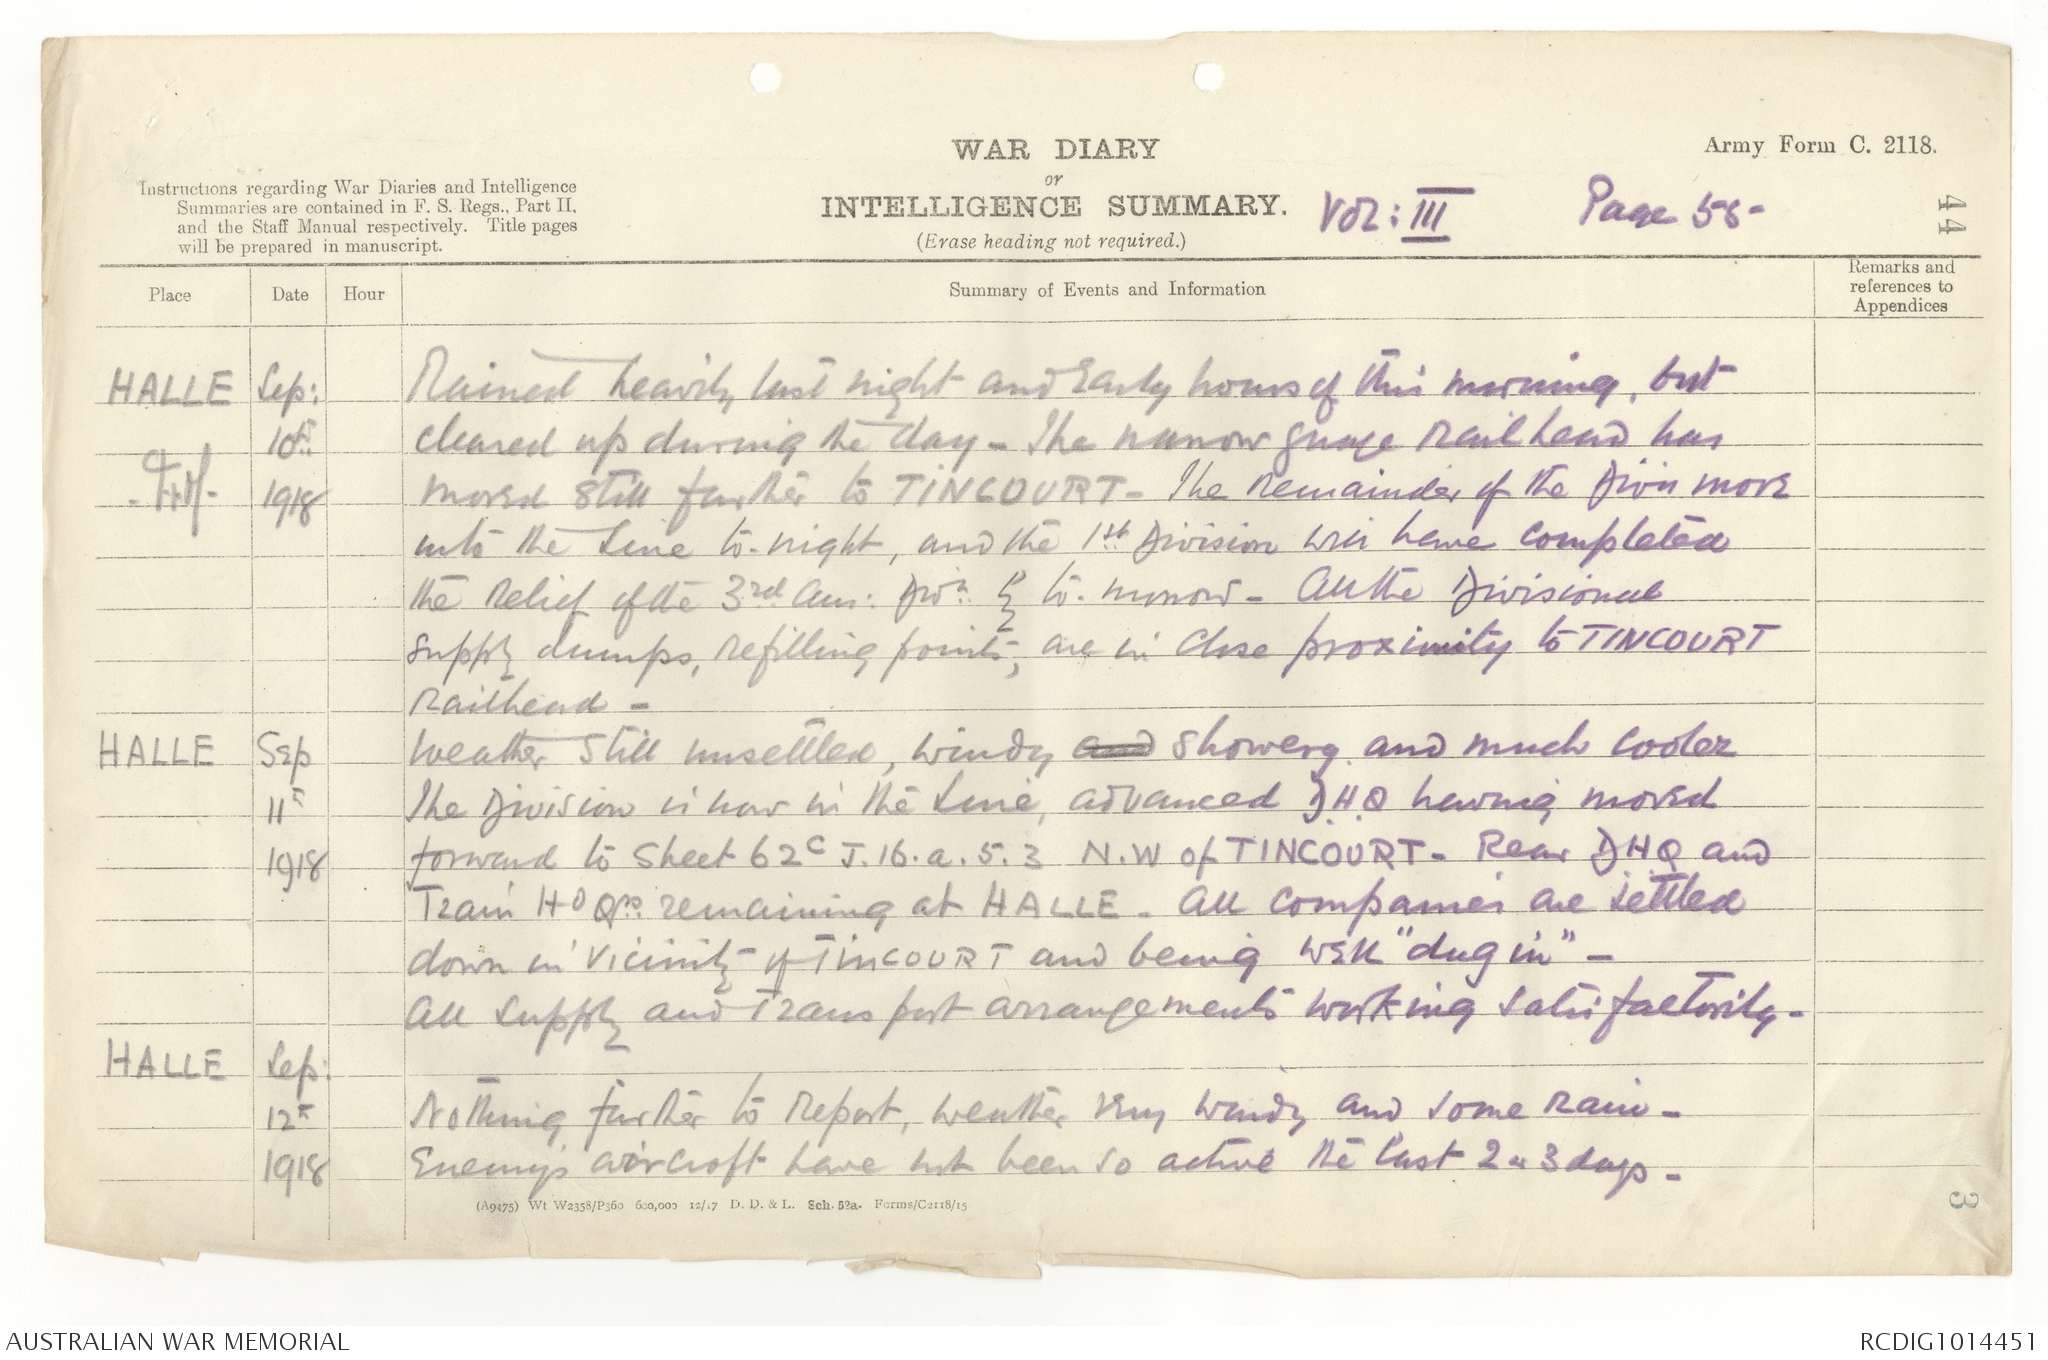 WAR DIARY
or
INTELLIGENCE SUMMARY.
(Erase heading not required.)
Army Form C. 2118.
Instructions regarding War Diaries and Intelligence
Summaries are contained in F. S. Regs., Part II,
and the Staff Manual respectively. Title pages
will be prepared in manuscript.
VOL: III
Page 58-
44
Place Date Hour Summary of Events and Information Remarks and
references to
Appendices
HALLE Sep: Rained heavily last night and Early hours of this morning, but
10th cleared up during the day - The narrow guage Railhead has
1918 moved still further to TINCOURT - The Remainder of the Divn move
into the Line to-night, and the 1st Division will have completed
the Relief of the 3rd Aus: Divn: by to-morrow - All the Divisional
Supply dumps, refilling points, are in close proximity to TINCOURT
Railhead -
HALLE Sep Weather still unsettled, windy and showery and much cooler
11th The Division is now in the Line, advanced D.H.Q having moved
1918 forward to Sheet 62C J.16.a.5.3 N.W of TINCOURT - Rear DHQ and
Train HD QRS remaining at HALLE - All companies are settled
down in vicinity of TINCOURT and being well "dug in" -
All Supply and Transport arrangements working satisfactorily -
HALLE Sep:
12th Nothing further to Report, weather very windy and some rain -
1918 Enemy's aircraft have not been so active the last 2 or 3 days -
(A9475) Wt W2358/P360 600,000 12/17 D. D. & L. Sch. 52a. Forms/C2118/15
3
AUSTRALIAN WAR MEMORIAL
RCDIG1014451